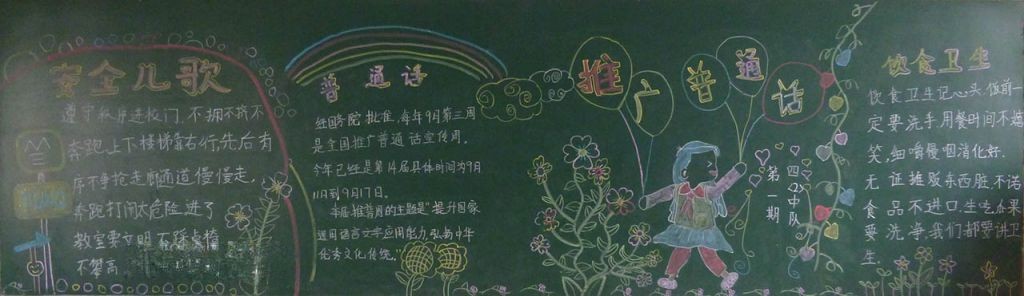 安全儿歌
遵守秩序进校门,不拥不挤不
奔跑上下楼梯靠右行,先后有
序不争抢走廊通道慢慢走,
奔跑打闹太危险进了
教室要文明不
不攀高
普通话
经国务院批准,每年9月第三周
是全国推广普通话宣传周。
今年已经是第14届具体时间为9月
11日到9月17日。
本届推普周的主题是"提升国家
通用语言文字应用能力弘扬中华
优秀文化传统。
推广普通话
四(2)中队
第一期
饮食卫生
饮食卫生记心头饭前一
定要洗手用餐时间不说
笑,细嚼慢咽消化好.
无证摊贩东西脏不洁
食品不进口生吃水果
要洗净我们都要讲卫
生